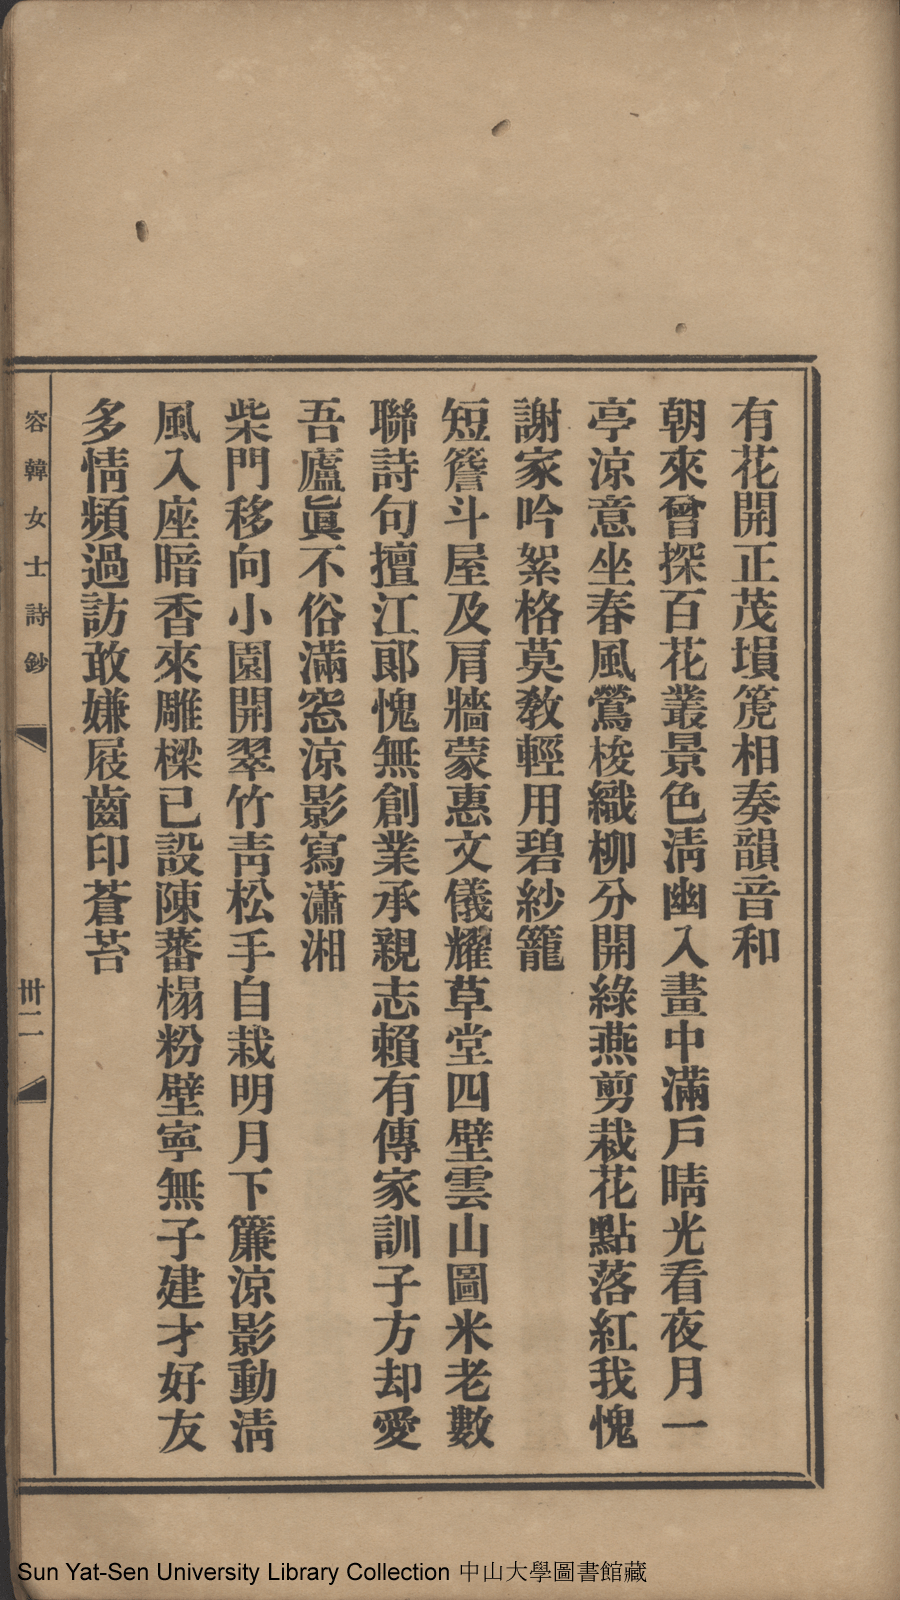 有花開正茂塤箎相奏韻音和
朝來曾探百花叢景色淸幽入畫中滿戶晴光看夜月一
亭涼意坐春風鶯梭織柳分開綠燕剪裁花點落紅我愧
謝家吟絮格莫敎輕用碧紗籠
短簷斗屋及肩牆蒙惠文儀耀草堂四壁雲山圖米老數
聯詩句擅江郞愧無創業承親志賴有傳家訓子方却愛
吾廬眞不俗滿窓涼影寫瀟湘
柴門移向小園開翠竹靑松手自栽明月下簾涼影動淸
風入座暗香來雕樑已設陳蕃榻粉壁寧無子建才好友
多情頻過訪敢嫌屐齒印蒼苔
容韓女士詩鈔
卅二
Sun Yat-Sen University Library Collection 中山大學圖書館藏